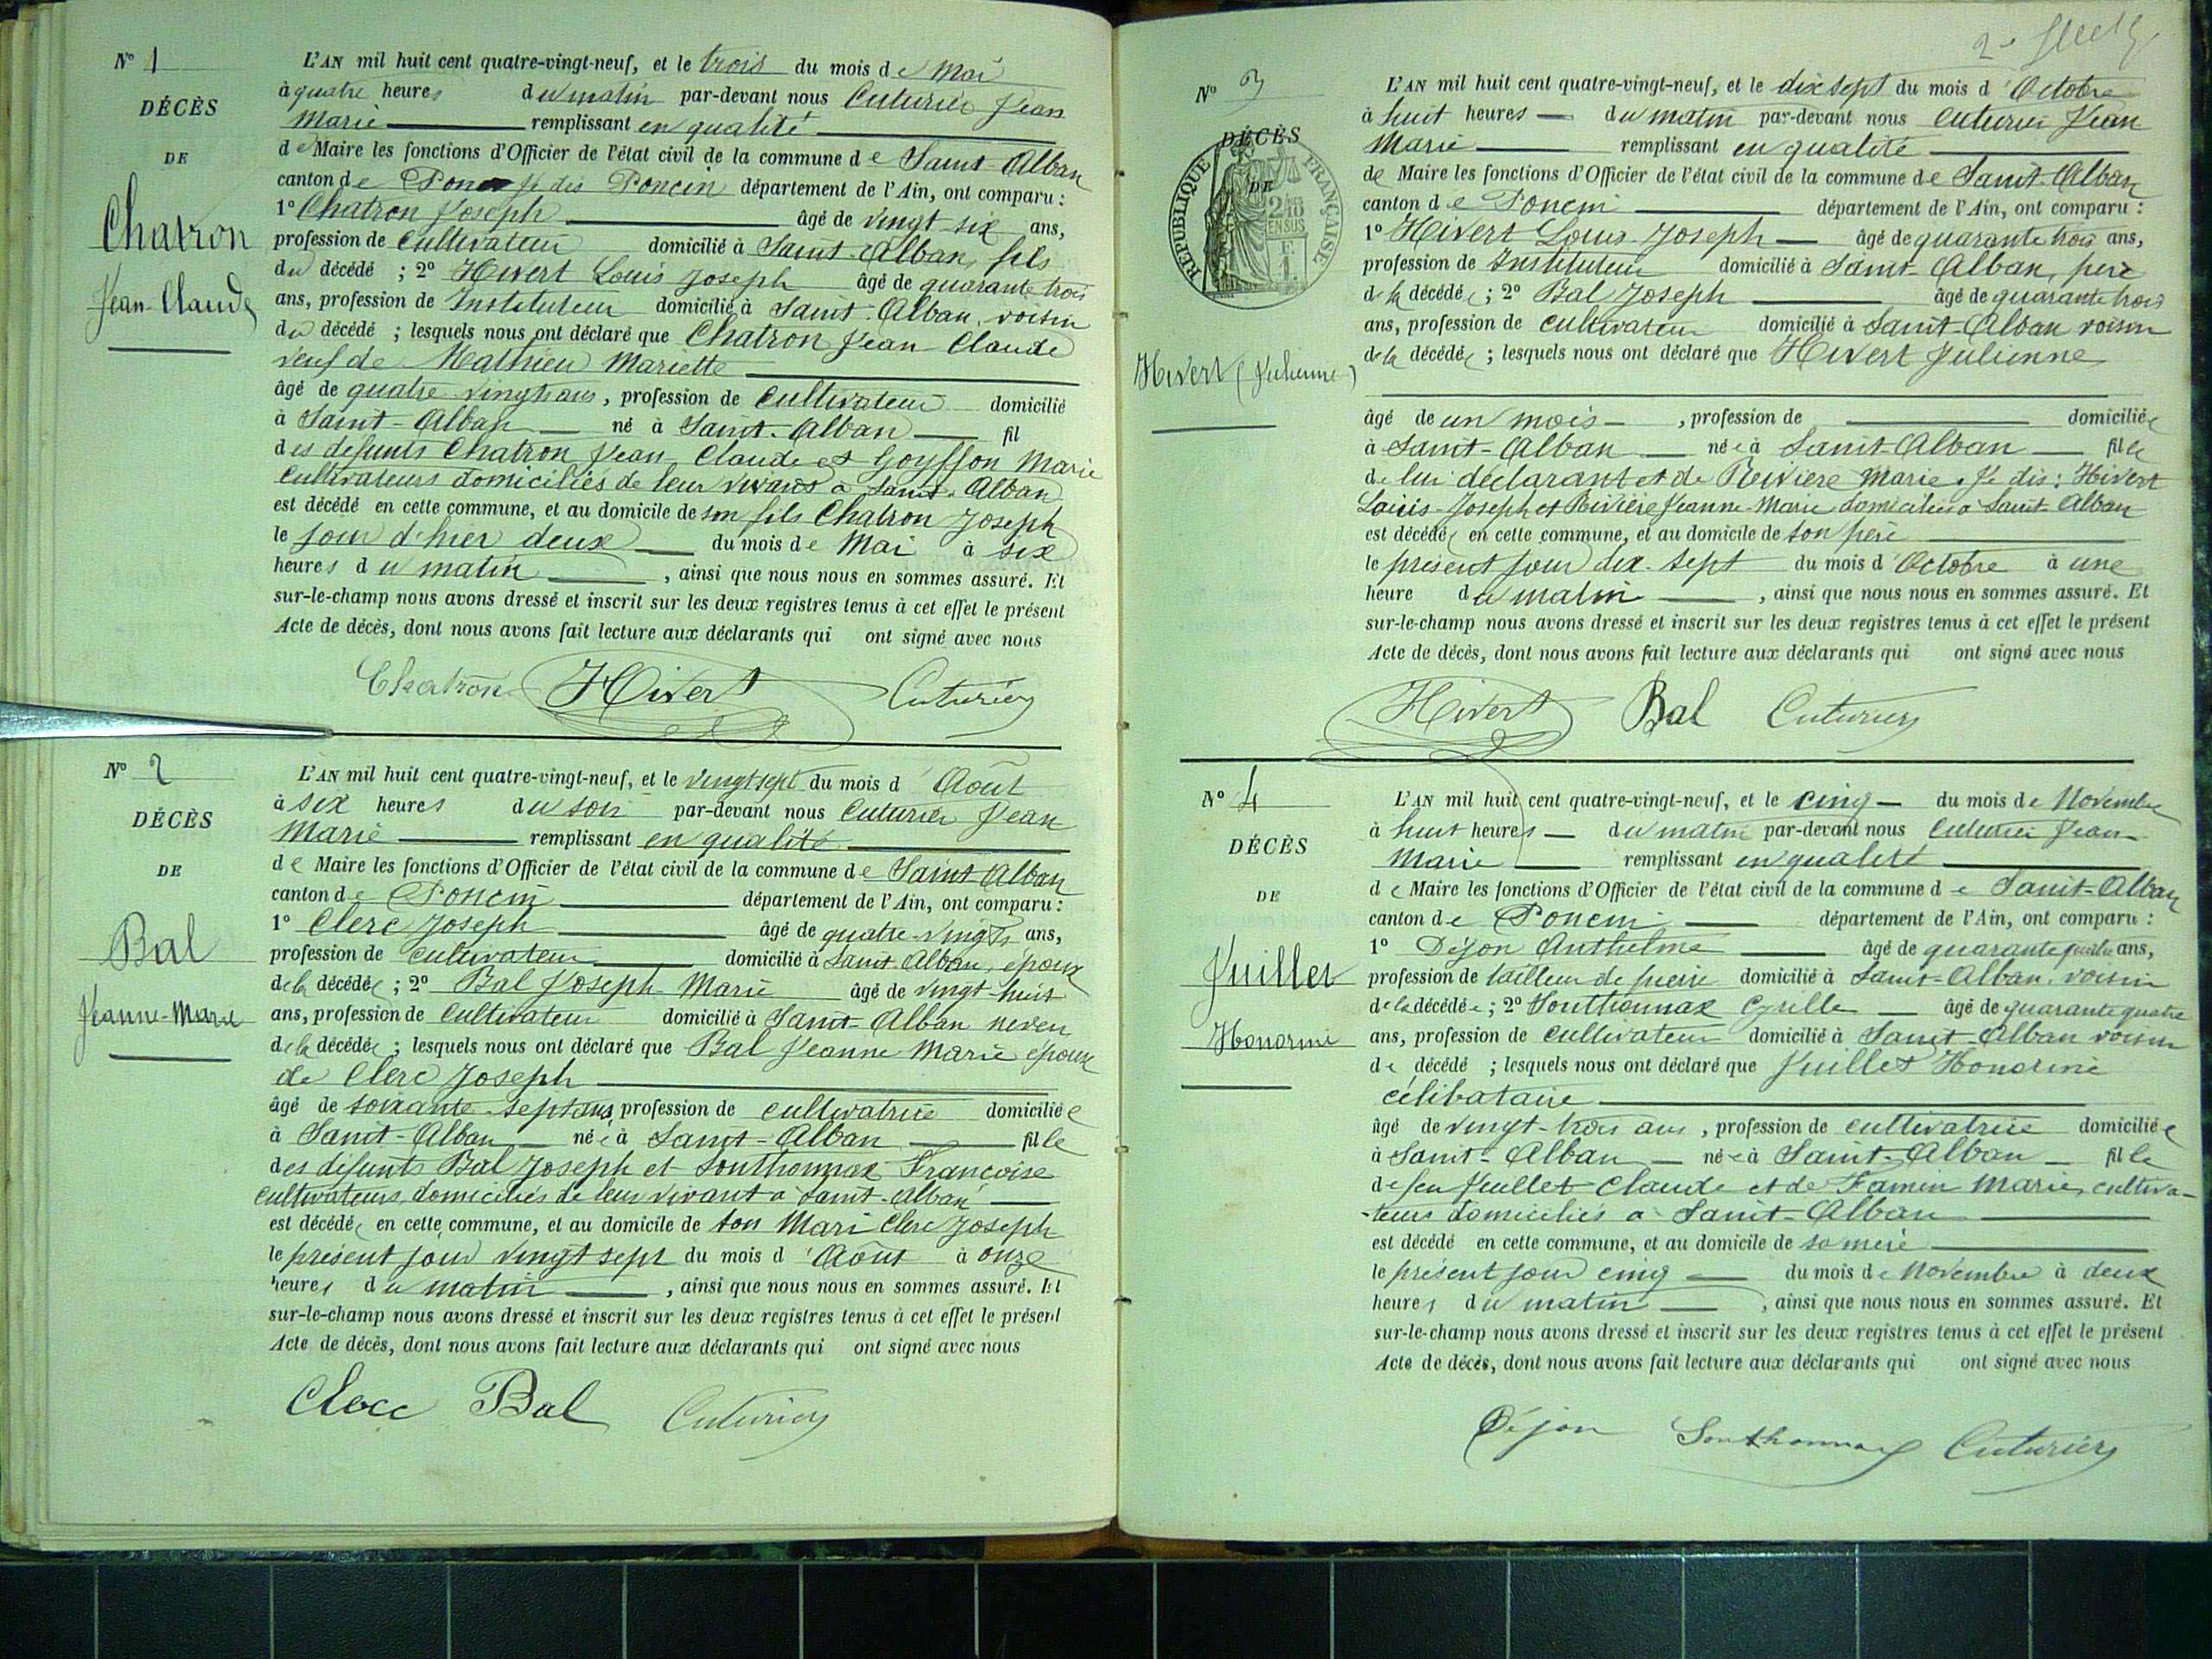 N° 1
DÉCÈS
DE
Chatron
Jean-Claude
L'AN mil huit cent quatre-vingt-neuf, et le trois du mois de Mai
à quatre heures du matin par-devant nous Cuturier Jean
Marie remplissant en qualité
de Maire les fonctions d'Officier de l'état civil de la commune de Saint-Alban
canton de Je dis Poncin département de l'Ain, ont comparu :
1° Chatron Joseph âgé de vingt six ans,
profession de Cultivateur domicilié à Saint-Alban, fils
du décédé ; 2° Hivert Louis Joseph âgé de quarante trois
ans, profession de Instituteur domicilié à Saint-Alban, voisin
du décédé ; lesquels nous ont déclaré que Chatron Jean Claude
veuf de Mathieu Mariette
âgé de quatre vingts ans, profession de Cultivateur domicilié
à Saint-Alban né à Saint-Alban fil
des defunts Chatron Jean Claude et Goyffon Marie
cultivateurs domiciliés de leur vivant à Saint-Alban
est décédé en cette commune, et au domicile de son fils Chatron Joseph
le jour d'hier deux du mois de Mai à six
heures du matin , ainsi que nous nous en sommes assuré. Et
sur-le-champ nous avons dressé et inscrit sur les deux registres tenus à cet effet le présent
Acte de décès, dont nous avons fait lecture aux déclarants qui ont signé avec nous
Chatron Hivert Cuturier
N° 2
DÉCÈS
DE
Bal
Jeanne-Marie
L'AN mil huit cent quatre-vingt-neuf, et le vingt sept du mois d'Août
à six heures du soir par-devant nous Cuturier Jean
Marie remplissant en qualité
de Maire les fonctions d'Officier de l'état civil de la commune de Saint-Alban
canton de Poncin département de l'Ain, ont comparu :
1° Clerc Joseph âgé de quatre-vingts ans,
profession de Cultivateur domicilié à Saint-Alban, époux
de la décédée ; 2° Bal Joseph Marie âgé de vingt-huit
ans, profession de Cultivateur domicilié à Saint-Alban neveu
de la décédée ; lesquels nous ont déclaré que Bal Jeanne Marie épouse
de Clerc Joseph
âgé de soixante-sept ans, profession de cultivatrice domiciliée
à Saint-Alban née à Saint-Alban fille
des défunts Bal Joseph et Southonnax Françoise
cultivateurs, domiciliés de leur vivant à Saint-Alban
est décédée en cette commune, et au domicile de son Mari Clerc Joseph
le présent jour vingt sept du mois d'Août à onze
heures du matin , ainsi que nous nous en sommes assuré. Et
sur-le-champ nous avons dressé et inscrit sur les deux registres tenus à cet effet le présent
Acte de décès, dont nous avons fait lecture aux déclarants qui ont signé avec nous
Clerc Bal Cuturier
N° 3
DÉCÈS
DE
RÉPUBLIQUE FRANÇAISE
2/10 EN SUS
Hivert (Julienne)
L'AN mil huit cent quatre-vingt-neuf, et le dix sept du mois d'Octobre
à huit heures du matin par-devant nous Cuturier Jean
Marie remplissant en qualité
de Maire les fonctions d'Officier de l'état civil de la commune de Saint-Alban
canton de Poncin département de l'Ain, ont comparu :
1° Hivert Louis-Joseph âgé de quarante trois ans,
profession de Instituteur domicilié à Saint-Alban, père
de la décédée ; 2° Bal Joseph âgé de quarante trois
ans, profession de cultivateur domicilié à Saint-Alban voisin
de la décédée ; lesquels nous ont déclaré que Hivert Julienne
âgé de un mois , profession de domiciliée
à Saint-Alban née à Saint-Alban fille
de lui déclarant et de Rivière Marie. Je dis : Hivert
Louis-Joseph et Rivière Jeanne-Marie domiciliés à Saint-Alban
est décédée en cette commune, et au domicile de son père
le présent jour dix-sept du mois d'Octobre à une
heure du matin , ainsi que nous nous en sommes assuré. Et
sur-le-champ nous avons dressé et inscrit sur les deux registres tenus à cet effet le présent
Acte de décès, dont nous avons fait lecture aux déclarants qui ont signé avec nous
Hivert Bal Cuturier
N° 4
DÉCÈS
DE
Juillet
Honorine
L'AN mil huit cent quatre-vingt-neuf, et le cinq du mois de Novembre
à huit heures du matin par-devant nous Cuturier Jean
Marie remplissant en qualité
de Maire les fonctions d'Officier de l'état civil de la commune de Saint-Alban
canton de Poncin département de l'Ain, ont comparu :
1° Déjon Anthelme âgé de quarante quatre ans,
profession de tailleur de pierre domicilié à Saint-Alban, voisin
de la décédée ; 2° Southonnax Cyrille âgé de quarante quatre
ans, profession de cultivateur domicilié à Saint-Alban voisin
de décédé ; lesquels nous ont déclaré que Juillet Honorine
célibataire
âgé de vingt-trois ans , profession de cultivatrice domiciliée
à Saint-Alban née à Saint-Alban fille
de feu Juillet Claude et de Famin Marie, cultiva-
-teurs domiciliés à Saint-Alban
est décédé en cette commune, et au domicile de sa mère
le présent jour cinq du mois de Novembre à deux
heures du matin , ainsi que nous nous en sommes assuré. Et
sur-le-champ nous avons dressé et inscrit sur les deux registres tenus à cet effet le présent
Acte de décès, dont nous avons fait lecture aux déclarants qui ont signé avec nous
Déjon Southonnax Cuturier